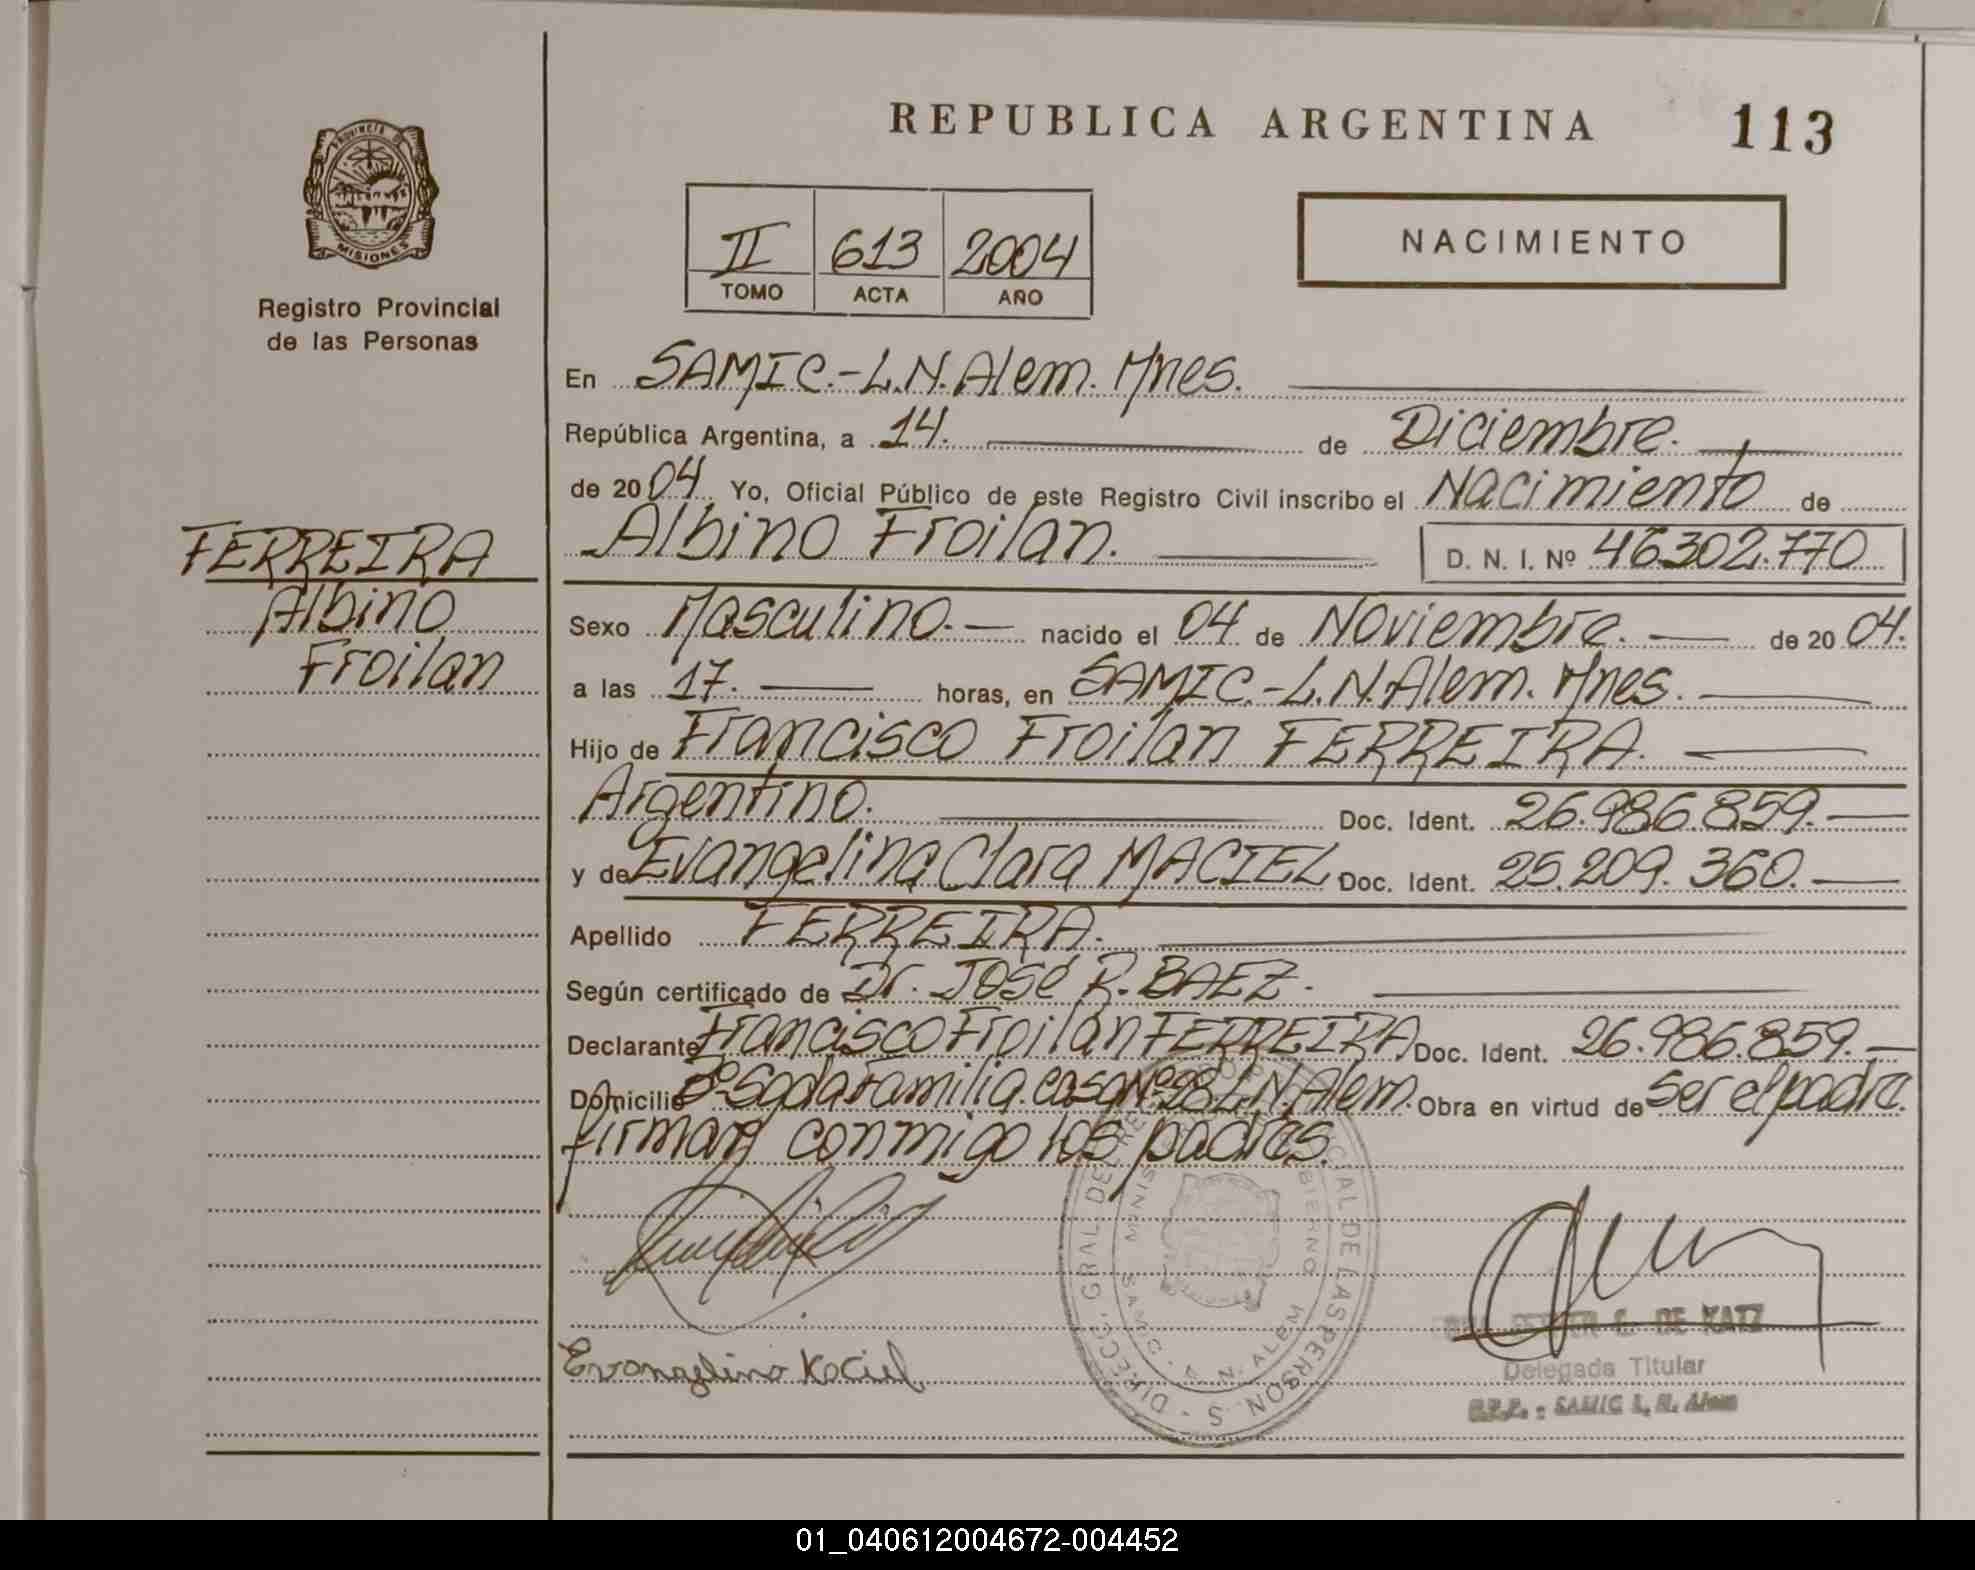 REPUBLICA ARGENTINA
113
PROVINCIA DE
MISIONES
Registro Provincial
de las Personas
II 613 2004
TOMO ACTA AÑO
NACIMIENTO
FERREIRA
Albino
Froilan
En SAMIC.-L.N.Alem. Mnes.
República Argentina, a 14. de Diciembre.
de 2004 Yo, Oficial Público de este Registro Civil inscribo el Nacimiento de
Albino Froilan. D. N. I. Nº 46302.770
Sexo Masculino.- nacido el 04 de Noviembre. de 2004.
a las 17. horas, en SAMIC.-L.N.Alem. Mnes.
Hijo de Francisco Froilan FERREIRA.
Argentino. Doc. Ident. 26.986.859.
y de Evangelina Clara MACIEL Doc. Ident. 25.209.360.
Apellido FERREIRA.
Según certificado de Dr. José R. BAEZ.
Declarante Francisco Froilán FERREIRA Doc. Ident. 26.986.859.
Domicilio Bº Sgda Familia. casa Nº 28 L.N.Alem. Obra en virtud de ser el padre.
firman conmigo los padres.
DIRECC. GRAL. DEL REG. PROVINCIAL DE LAS PERSONAS
SAMIC. L. N. ALEM
Evangelina Maciel
C. DE KATZ
Delegada Titular
R.P.P. - SAMIC L. N. Alem
01_040612004672-004452